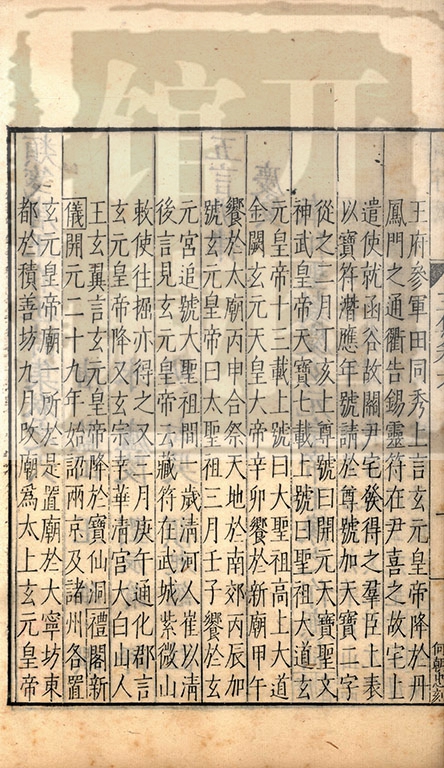 王府參軍田同秀上言玄元皇帝降於丹
鳳門之通衢告錫靈符在尹喜之故宅上
遣使就函谷故關尹宅發得之羣臣上表
以寶符潛應年號請於尊號加天寶二字
從之二月丁亥上尊號曰開元天寶聖文
神武皇帝天寶七載上號曰聖祖大道玄
元皇帝十三載上號曰大聖祖高上大道
金闕玄元天皇大帝辛卯饗於新廟甲午
饗於太廟丙申合祭天地於南郊丙辰加
號玄元皇帝曰太聖祖三月壬子饗於玄
元宮追號大聖祖間一歲清河人崔以清
後言見玄元皇帝云藏符在武城紫微山
敕使往掘亦得之又三月庚午通化郡言
玄元皇帝降又玄宗幸華清宮大白山人
王玄翼言玄元皇帝降於寶仙洞禮閣新
儀開元二十九年始詔兩京及諸州各置
玄元皇帝廟一所於是置廟於大寧坊東
都於積善坊九月改廟為太上玄元皇帝